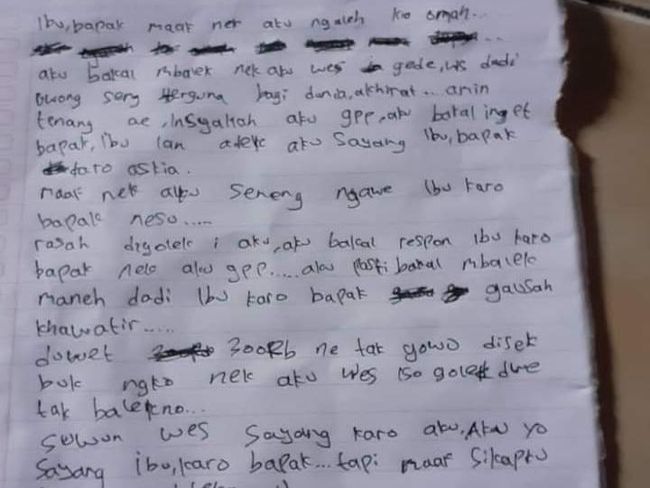 Ibu, bapak maaf nek aku ngaleh kio omah...
aku bakal mbalek nek aku wes gede, ws dadi
Owong seng berguna bagi dunia, akhirat... amin
tenang ae, Insyallah aku gpp, aku bakal inget
bapak, Ibu lan adek aku Sayang Ibu, bapak
karo astia.
maaf nek aku Seneng ngawe Ibu karo
bapak nesu.....
rasah digoleki aku, aku bakal respon Ibu karo
bapak nek aku gpp..... aku Pasti bakal mbalek
maneh dadi Ibu karo bapak gausah
khawatir.....
duwet 300Rb ne tak gowo disek
buk ngko nek aku wes iso golek dwe
tak balekno...
Suwun wes Sayang karo aku, Aku yo
Sayang ibu, karo bapak... tapi maaf Sikapku